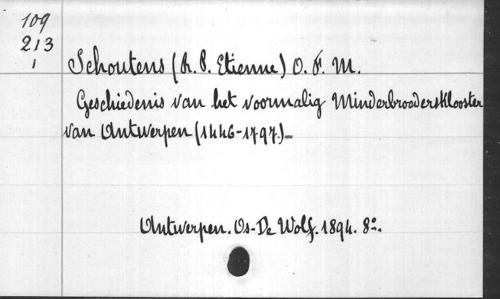 109
213
1
Schoutens (R. P. Etienne) O. F. M.
Geschiedenis van het voormalig Minderbroedersklooster
van Antwerpen (1446-1797).
Antwerpen. Os-De Wolf. 1894. 8º.